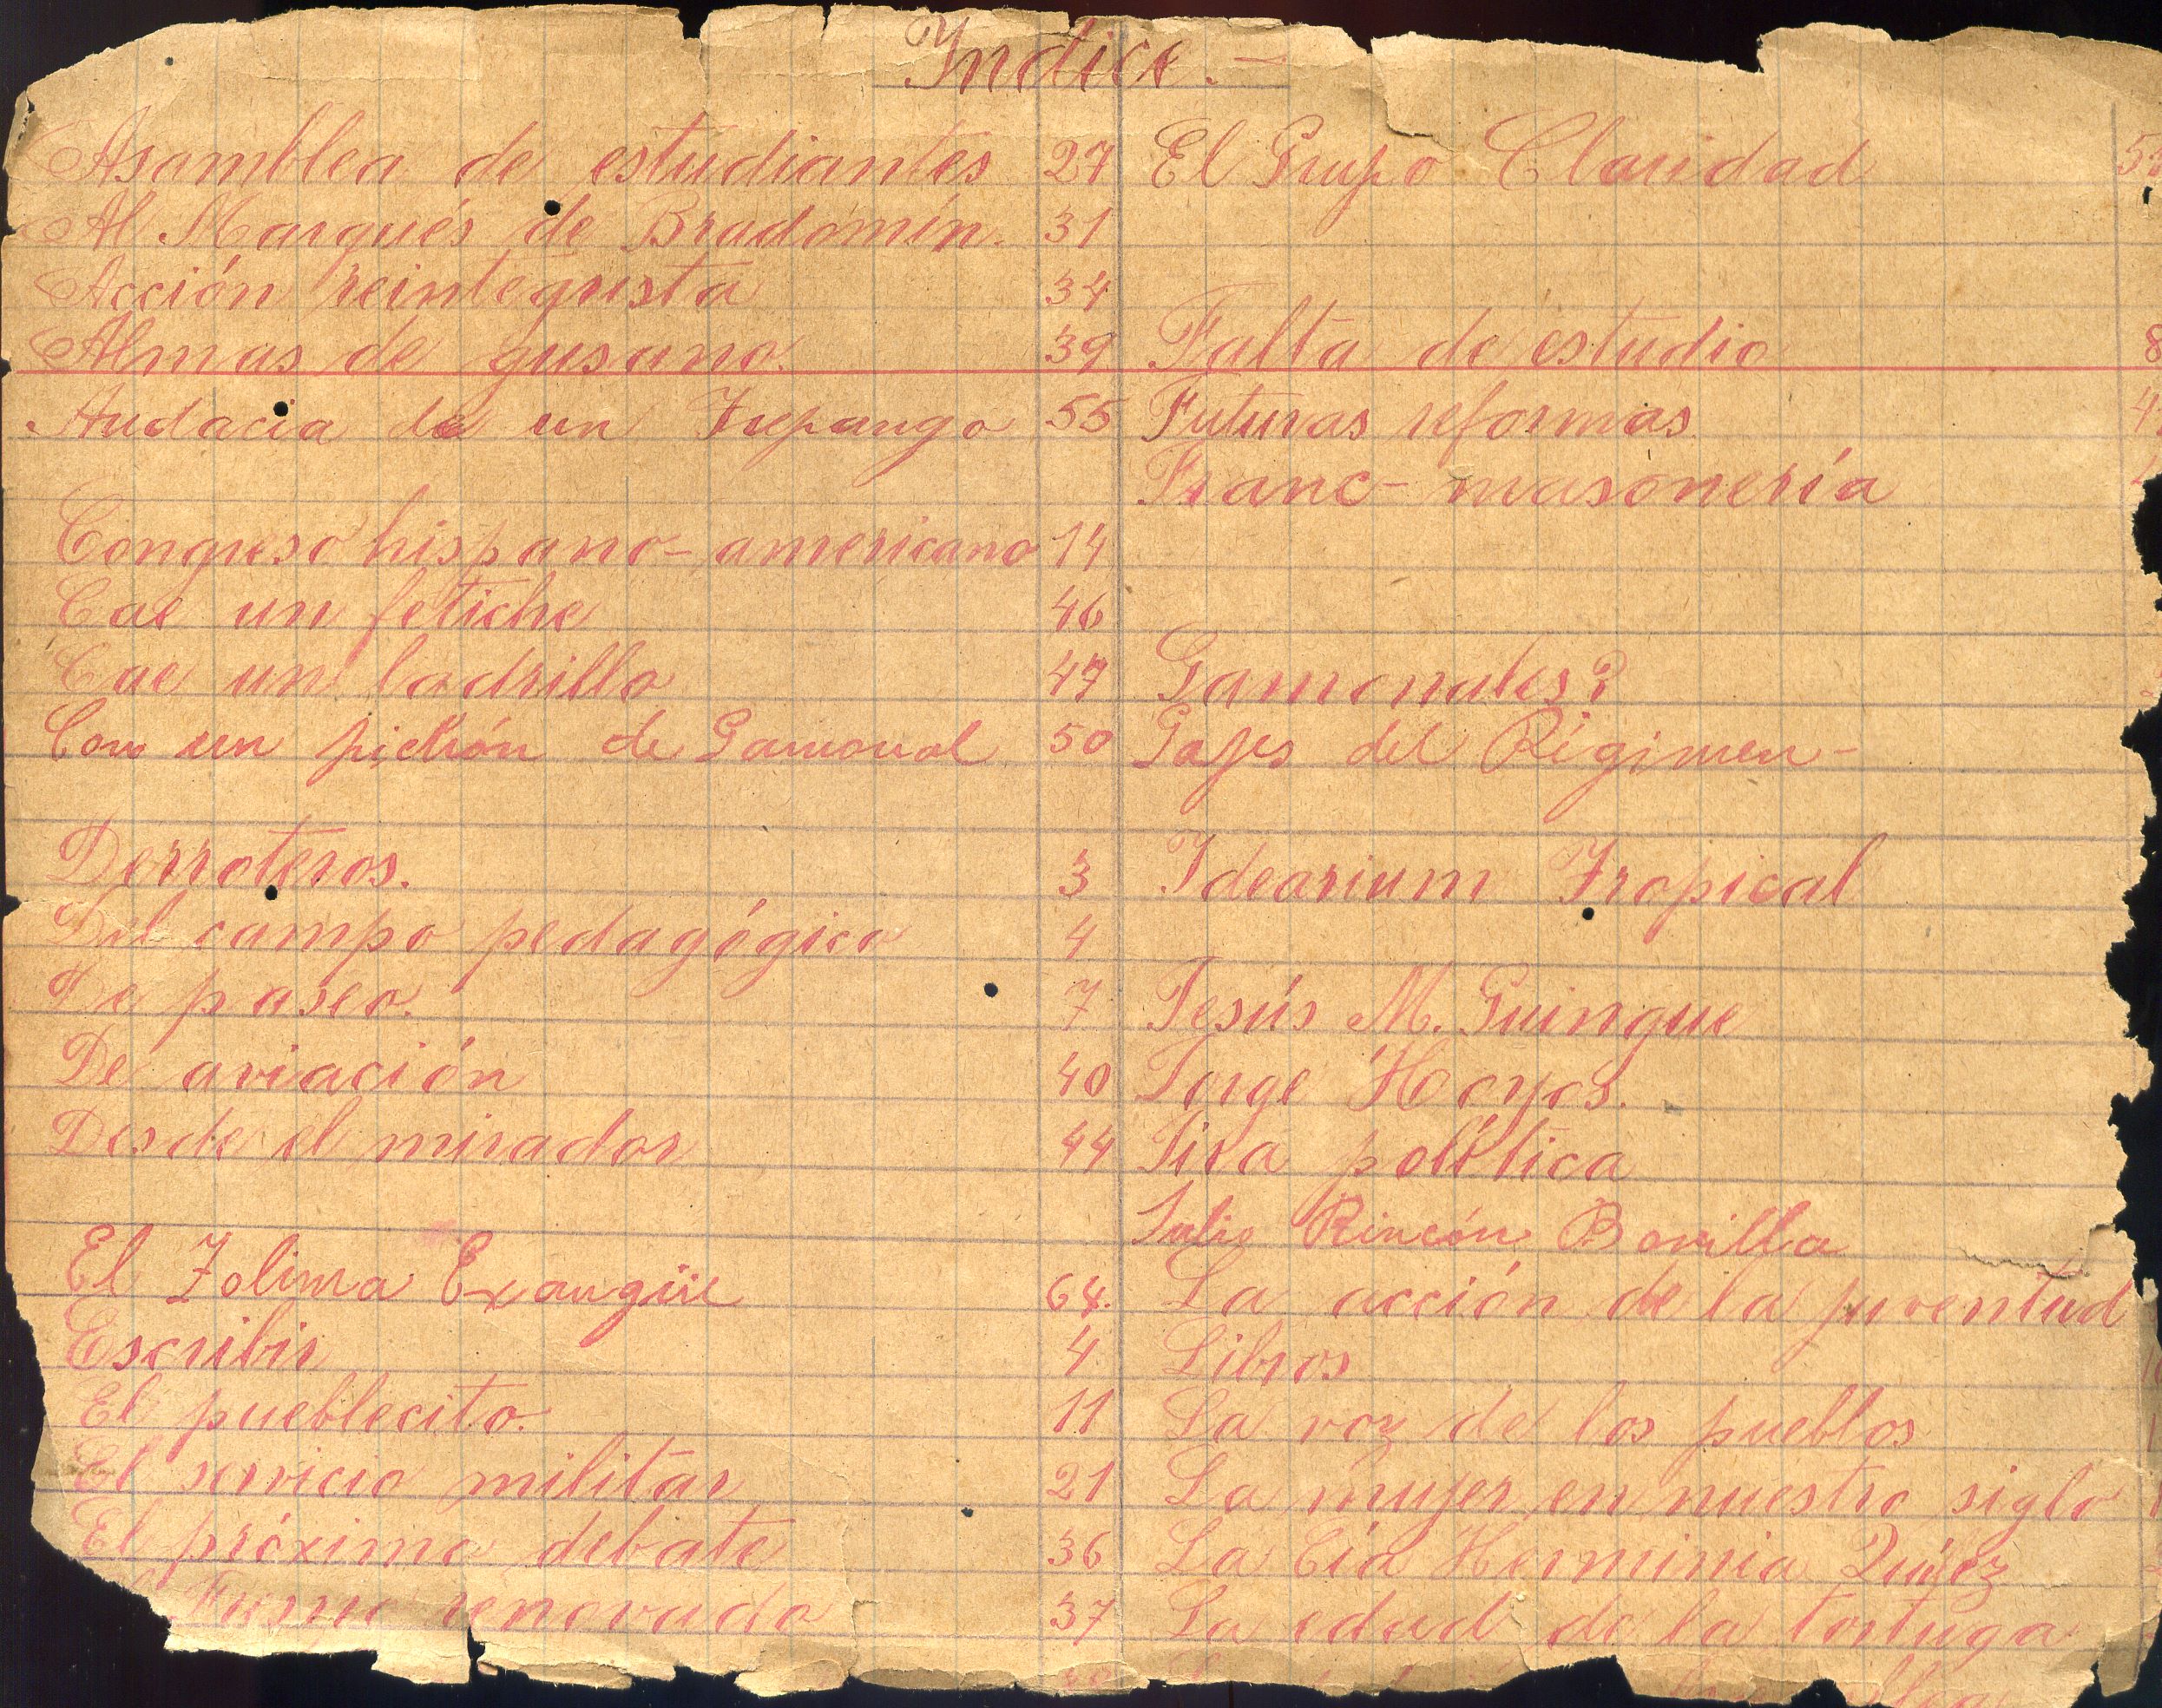 Indice.-
Asamblea de estudiantes 27
Al Marqués de Bradomín. 31
Acción reintegrista 34
Almas de gusano. 39
Audacia de un 55
Congreso hispano-americano 14
Cae un fetiche 46
Cae un ladrillo 47
Con un pichón de Gamonal 50
Derroteros. 3
Del campo pedagógico 4
De paseo. 7
De aviación 40
Desde el mirador 44
El Tolima Exangüe 64.
Escribir 4
El pueblecito. 11
El servicio militar 21
El próximo debate 36
El Fresno renovado 37
El Grupo Claridad
Falta de estudio 8
Futuras reformas 4
Franc-masonería
Gamonales?
Gajes del Régimen-
Idearium Tropical
Jesús M. Guingue
Jorge Hoyos.
Jira política
Julio Rincón Bonilla
La acción de la juventud
Libros
La voz de los pueblos
La mujer en nuestro siglo
La Cía Herminia
La edad de la tortuga